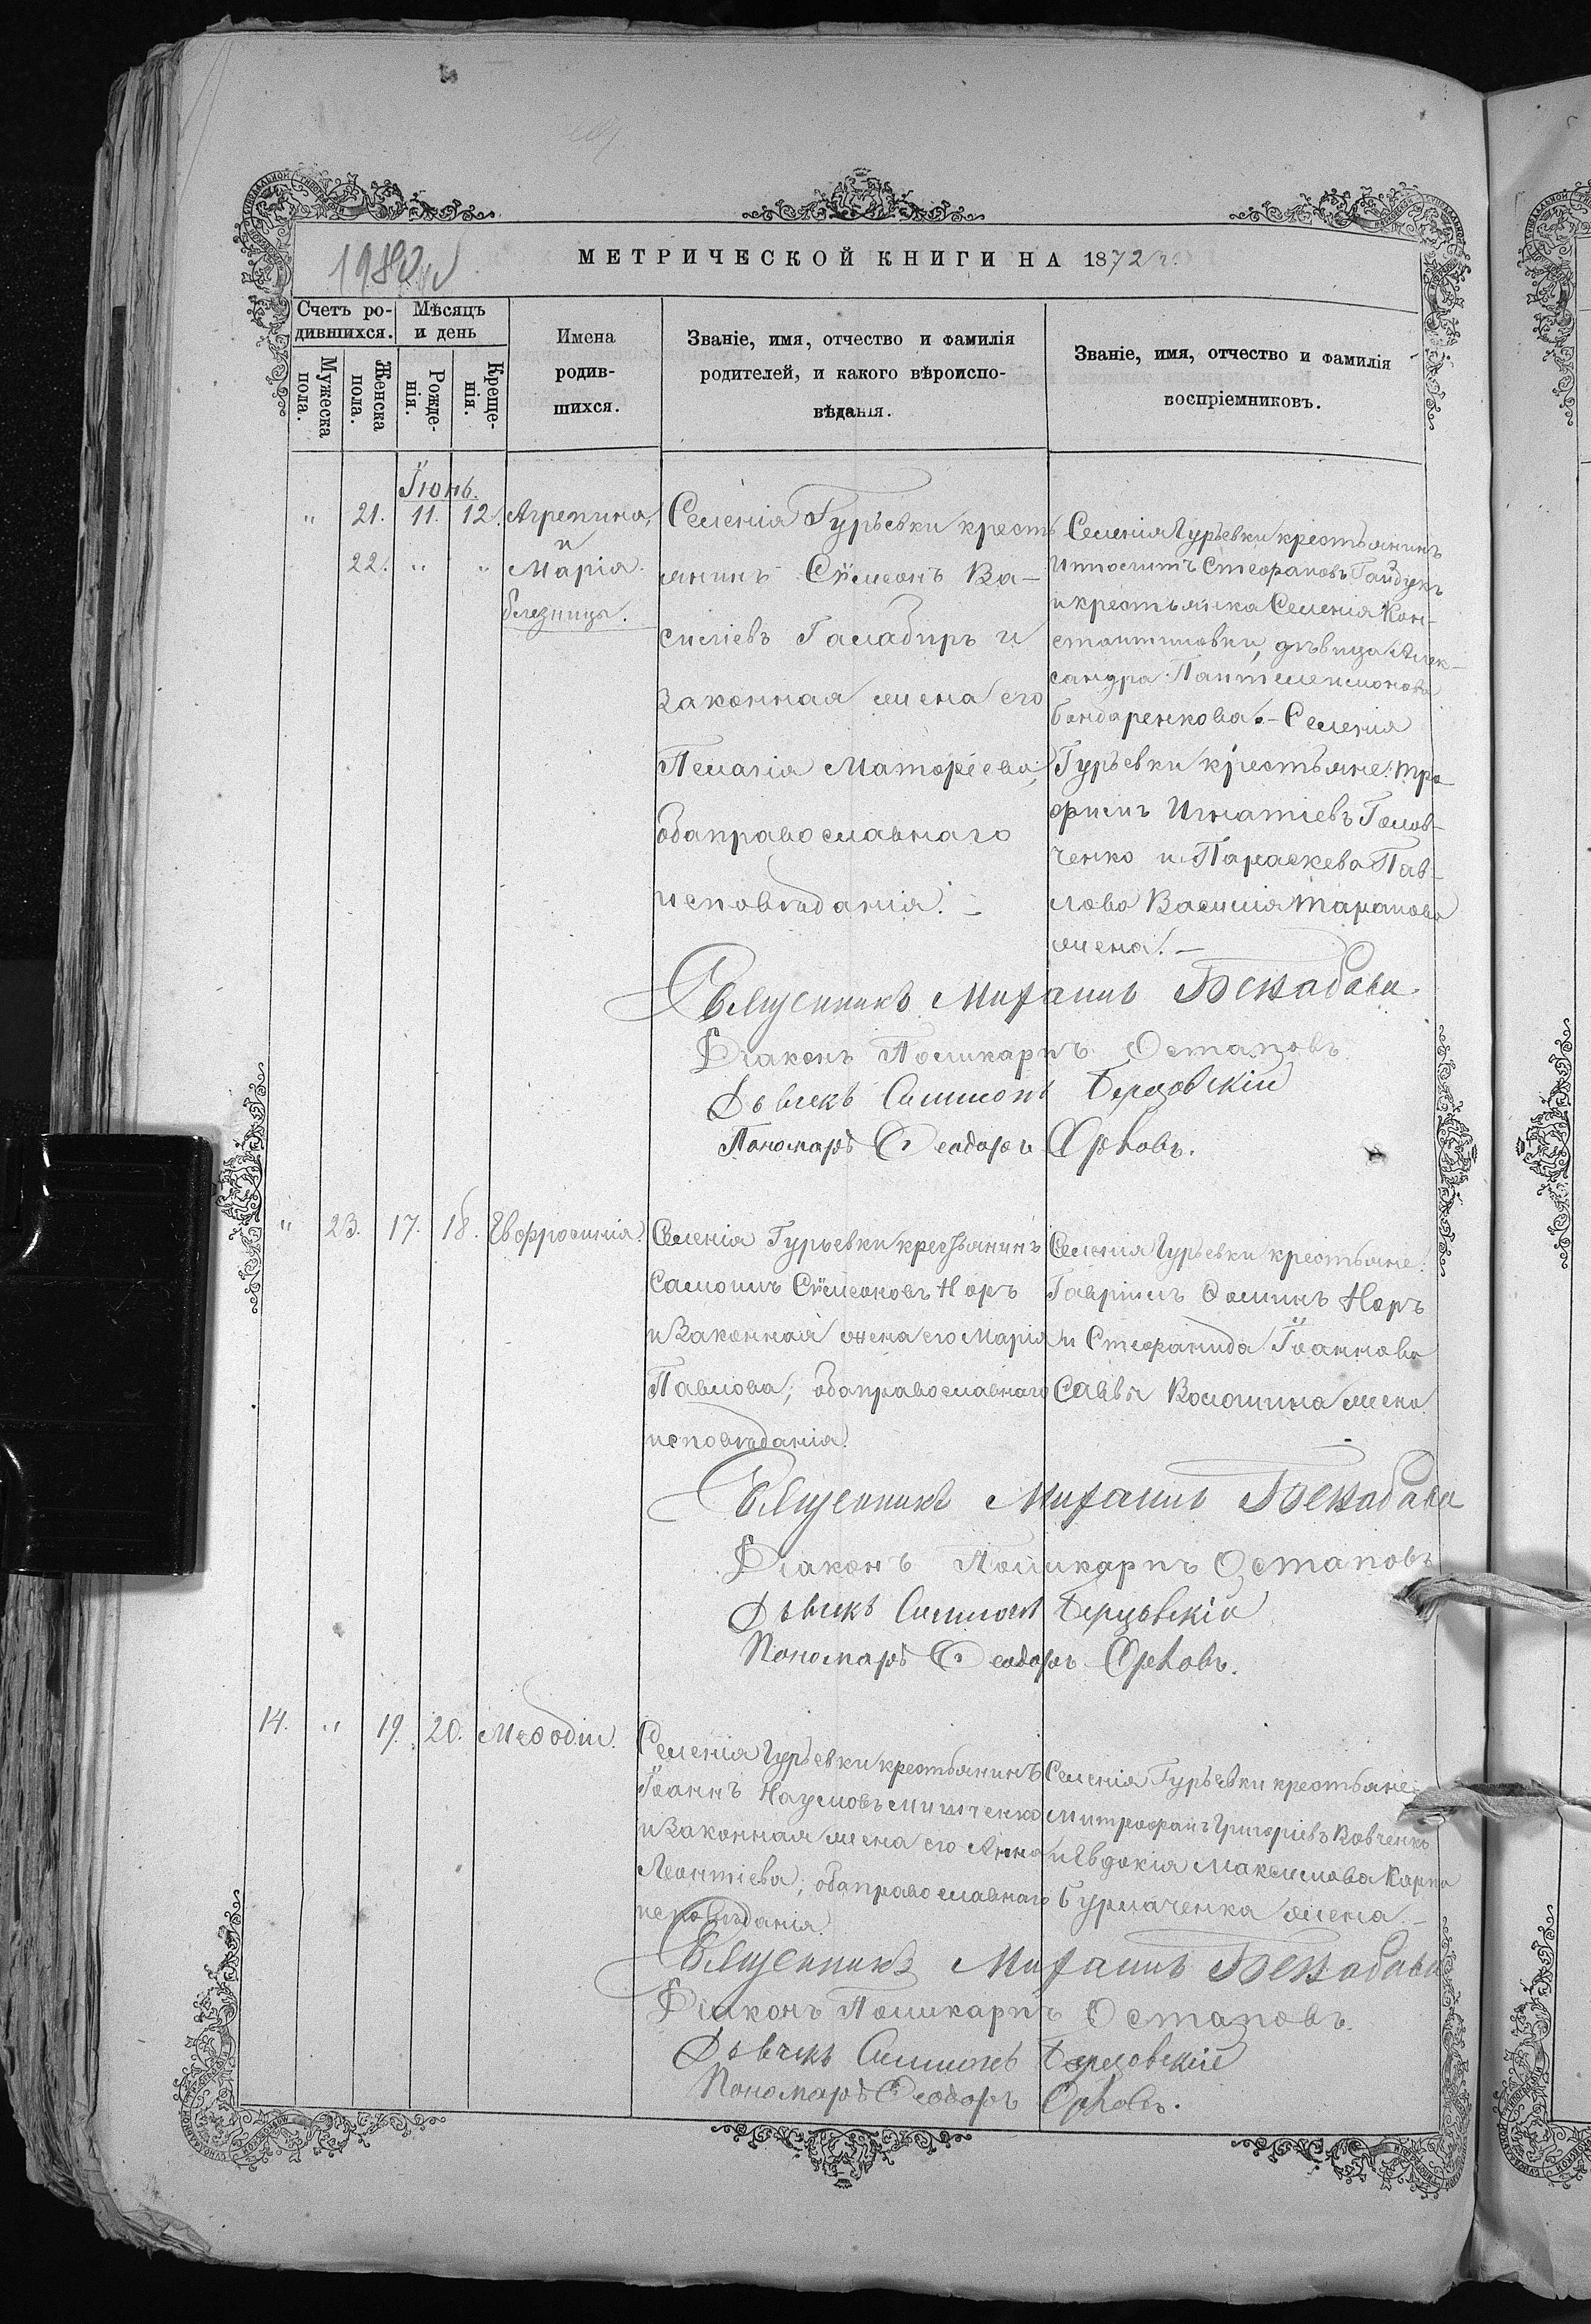 МЕТРИЧЕСКОЙ КНИГИ НА 1872 г.
Счетъ ро-
дившихся.
Мѣсяцъ
и день
Мужеска
пола.
Женска
пола.
Рожде-
нія.
Креще-
нія.
Имена
родив-
шихся.
Званіе, имя, отчество и фамилія
родителей, и какого вѣроиспо-
вѣданія.
Званіе, имя, отчество и фамилія
воспріемниковъ.
Іюнь.
" 21. 11. 12. Агрепина,
и
22. " " Марія.
близницы.
Селенія Гурьевки кресть
янинъ Сѵмеонъ Ва-
силіевъ Галабиръ и
законная жена его
Пелагія Матѳеіева;
оба православнаго
исповѣданія. –
Селенія Гурьевки крестьянинъ
Ипполитъ Стефановъ Гайдукъ
и крестьянка Селенія Кон-
стантиновки, дѣвица Алек-
сандра Пантелеимонова
Бондаренкова. – Селенія
Гурьевки крестьяне: Тро-
фимъ Игнатіевъ Голов-
ченко и Параскева Пав-
лова Василія Таранова
жена. –
Священникъ Михаилъ
Діаконъ Поликарпъ Остаповъ.
Дьячекъ Симеонъ Березовскій
Пономарь Ѳеодоръ Орловъ.
" 23. 17. 18. Евфросинія.
Селенія Гурьевки крестьянинъ
Самоилъ Сѵмеоновъ Норъ
и законная жена его Марія
Павлова; оба православнаго
исповѣданія.
Селенія Гурьевки крестьяне:
Гавріилъ Ѳоминъ Норъ
и Стефанида Іоаннова
Саввы Волошина жена.
Священникъ Михаилъ
Діаконъ Поликарпъ Остаповъ
Дьячекъ Симеонъ Березовскій
Пономарь Ѳеодоръ Орловъ.
14. " 19. 20. Меѳодій.
Селенія Гурьевки крестьянинъ
Іоаннъ Наумовъ Мищченко
и законная жена его Анна
Леонтіева; оба православнаго
исповѣданія.
Селенія Гурьевки крестьяне:
Митрофанъ Григоріевъ Вовченко
и Евдокія Максимова Карпа
Бурлаченка жена. –
Священникъ Михаилъ
Діаконъ Поликарпъ Остаповъ.
Дьячекъ Симеонъ Березовскій
Пономарь Ѳеодоръ Орловъ.